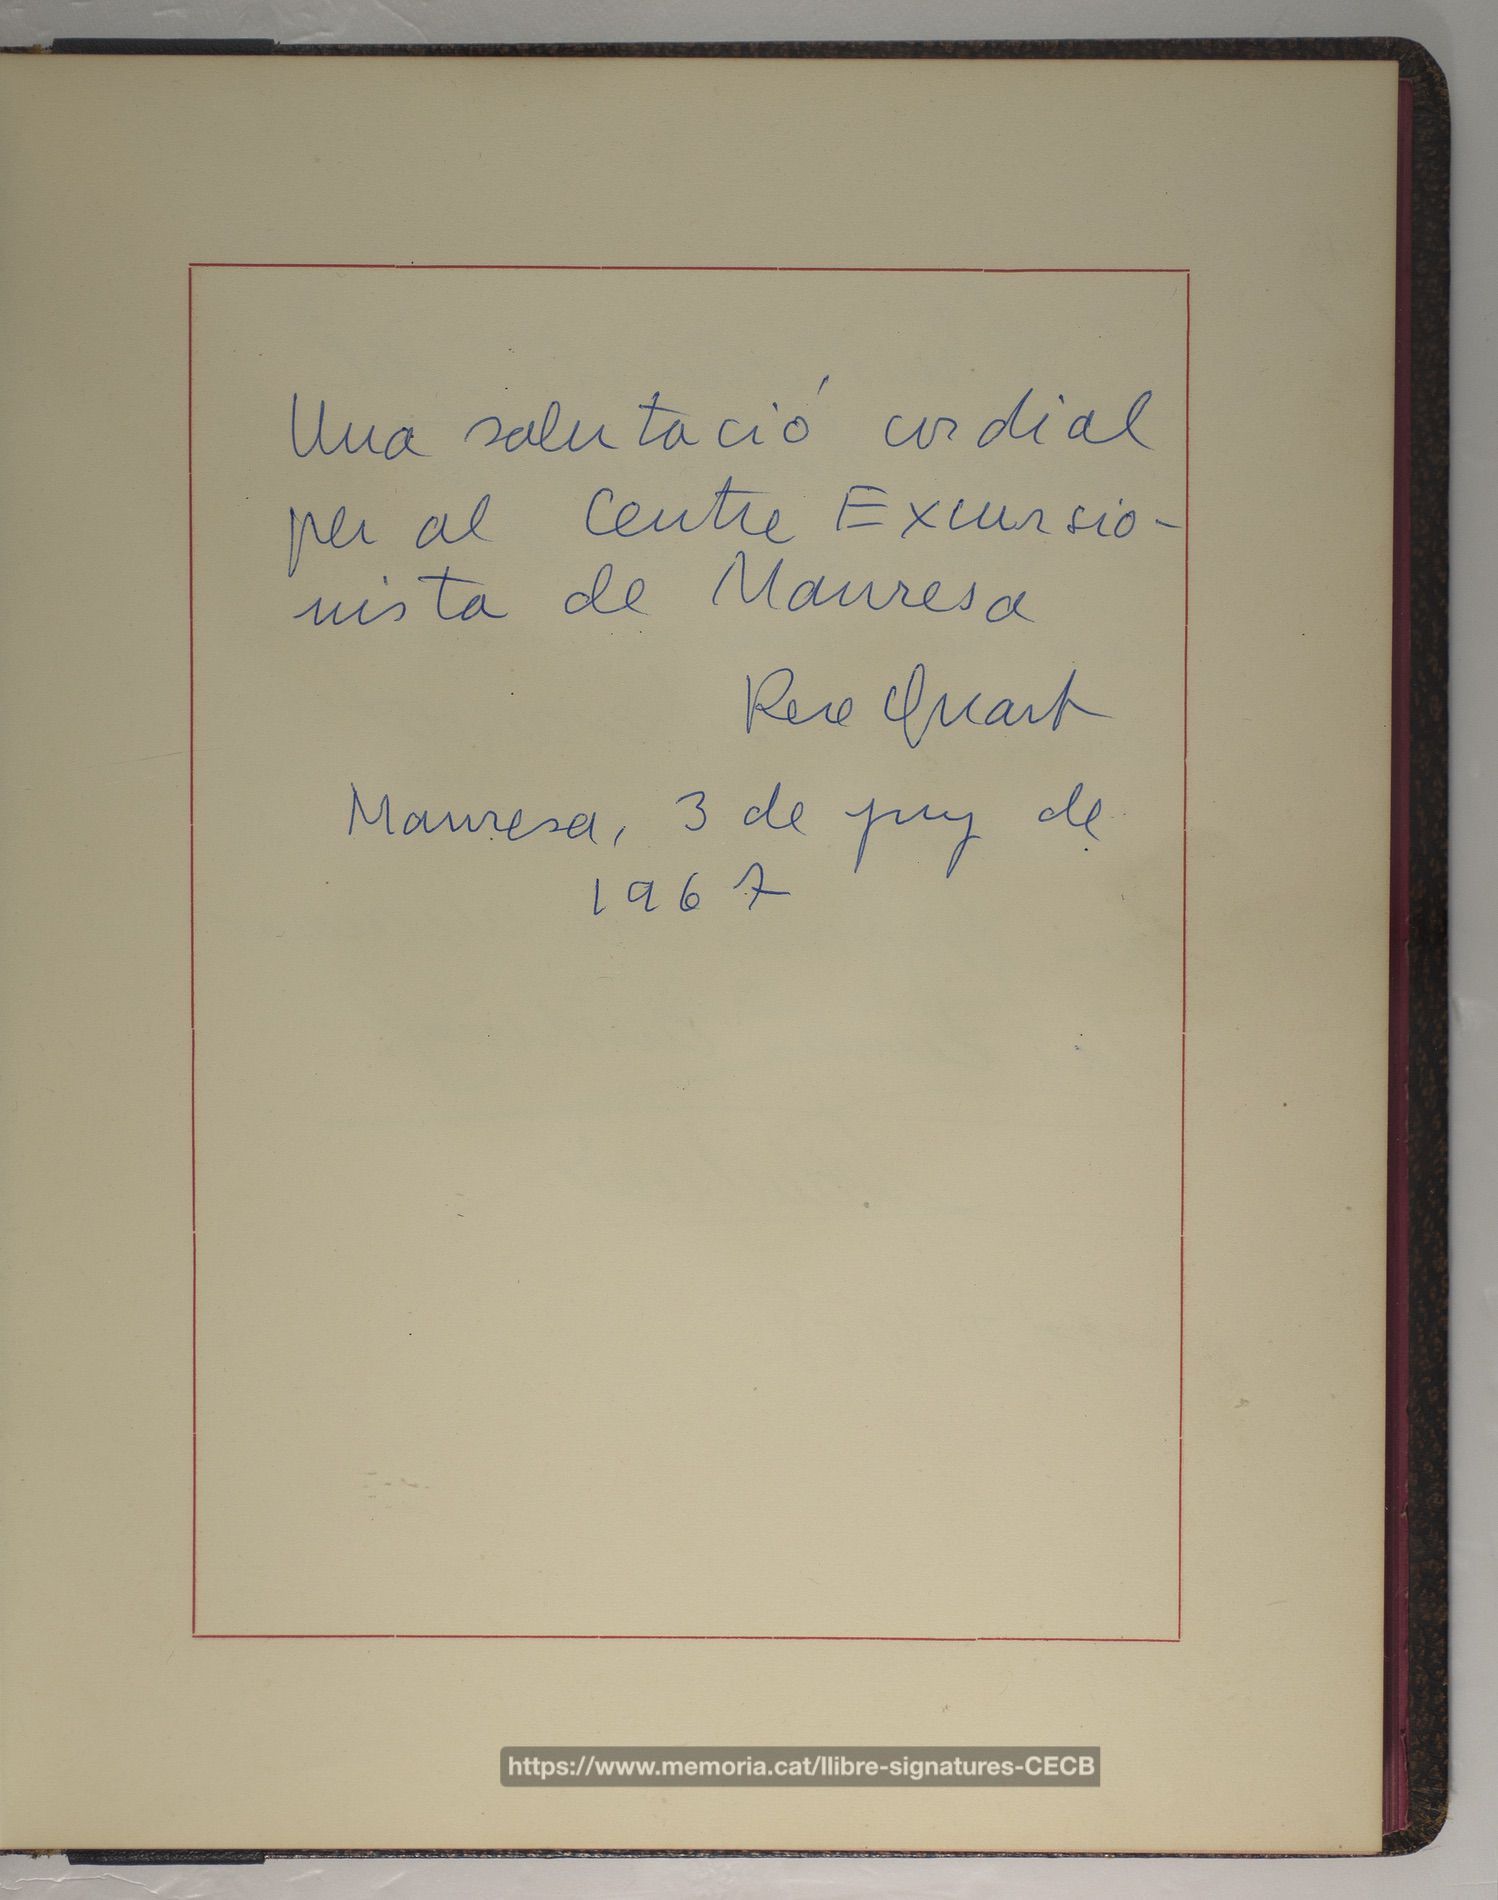 Una salutació cordial
per al Centre Excursio-
nista de Manresa
Pere Quart
Manresa, 3 de juny de
1967
https://www.memoria.cat/llibre-signatures-CECB